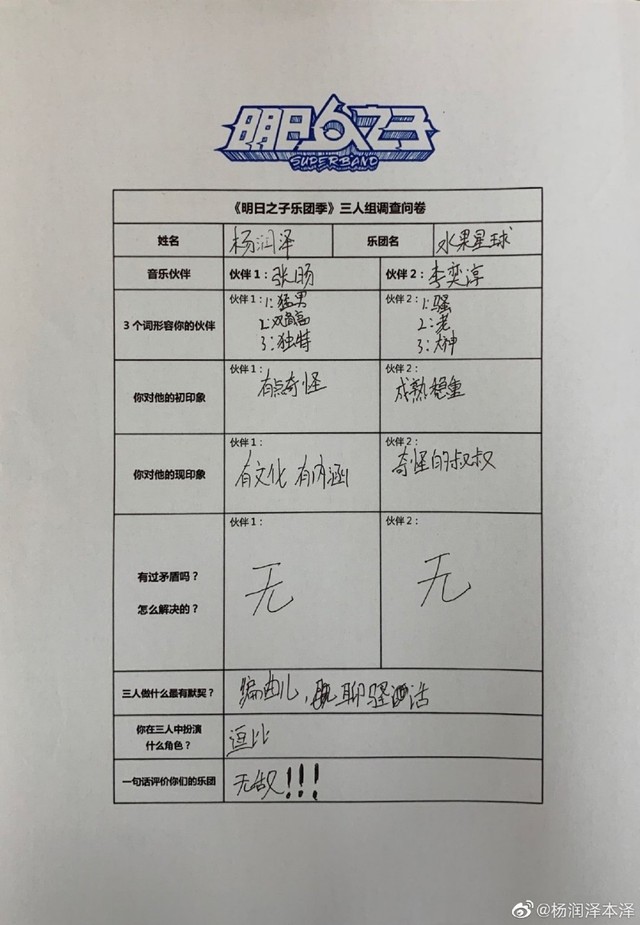 明日之子
SUPERBAND
《明日之子乐团季》三人组调查问卷
姓名 杨润泽 乐团名 水果星球
音乐伙伴 伙伴1：张旸 伙伴2：李奕淳
3个词形容你的伙伴
伙伴1：1：猛男
2：双商高
3：独特
伙伴2：1：骚
2：老
3：大神
你对他的初印象
伙伴1：
有点奇怪
伙伴2：
成熟稳重
你对他的现印象
伙伴1：
有文化 有内涵
伙伴2：
奇怪的叔叔
有过矛盾吗？
怎么解决的？
伙伴1：
无
伙伴2：
无
三人做什么最有默契？ 编曲儿，聊骚话
你在三人中扮演
什么角色？
逗比
一句话评价你们的乐团 无敌！！！
@杨润泽本泽